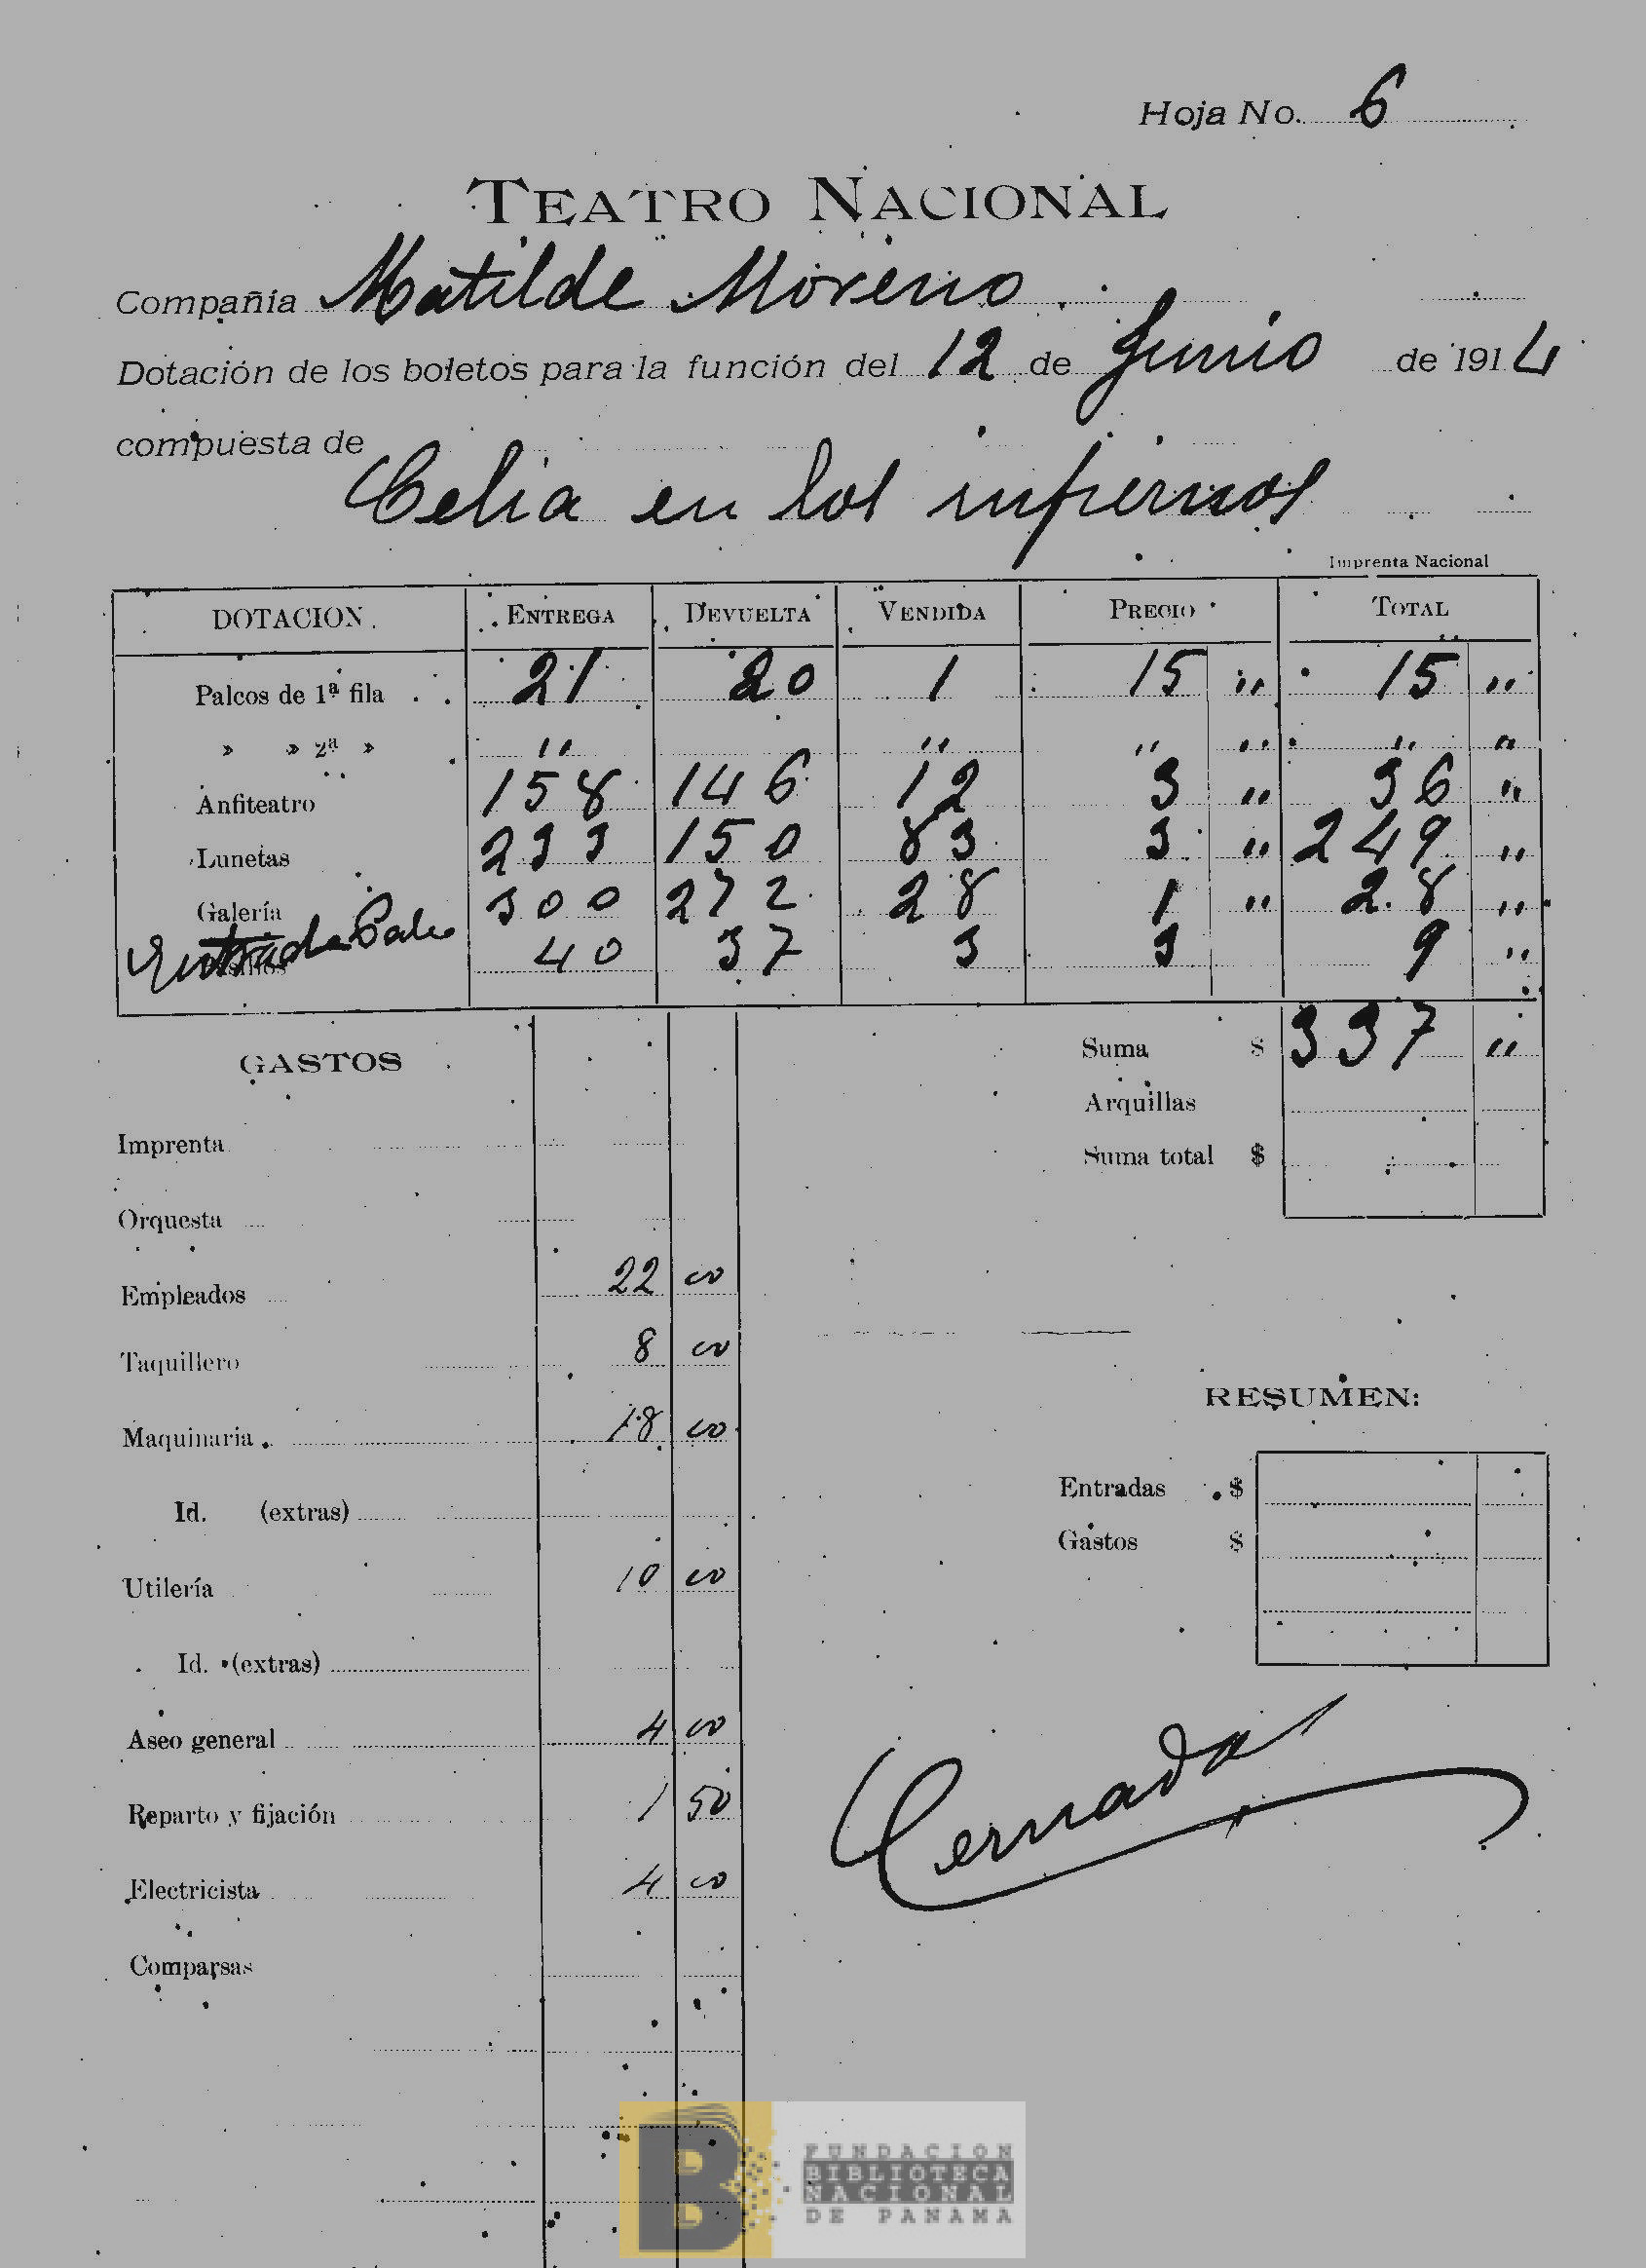 Hoja No. 6
TEATRO NACIONAL
Compañía Matilde Moreno
Dotación de los boletos para la función del 12 de Junio de 1914
compuesta de
Celia en los infiernos
Imprenta Nacional
DOTACION. ENTREGA DEVUELTA VENDIDA PRECIO TOTAL
Palcos de 1ª fila 21 20 1 15 ,, 15 ,,
» » 2ª » ,, ,, ,, ,, ,, ,,
Anfiteatro 158 146 12 3 ,, 36 ,,
Lunetas 233 150 83 3 ,, 249 ,,
Galería 300 272 28 1 ,, 28 ,,
Entrada Palco 40 37 3 3 9 ,,
Suma $ 337 ,,
GASTOS
Arquillas
Imprenta
Suma total $
Orquesta
Empleados 22 00
Taquillero 8 00
RESUMEN:
Maquinaria 18 00
Entradas $
Id. (extras)
Gastos $
Utilería 10 00
Id. (extras)
Aseo general 4 00
Reparto y fijación 1 50
Electricista 4 00
Comparsas
FUNDACION
BIBLIOTECA
NACIONAL
DE PANAMA